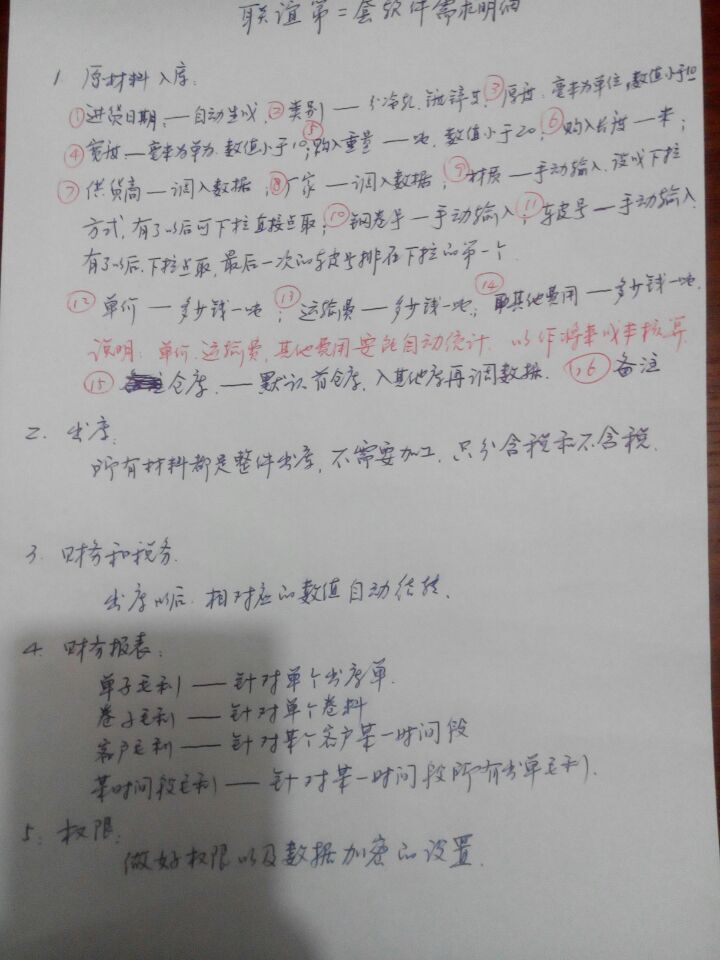 联谊第二套软件需求明细
1 原材料入库:
①进货日期,—自动生成,②类别——分冷轧,镀锌支③厚度:毫米为单位,数值小于10
④宽度—毫米为单为.数值小于10;⑤购入重量—吨,数值小于20;⑥购入长度—米;
⑦供货商—调入数据;⑧厂家—调入数据;⑨材质—手动输入.设成下拉
方式,有了以后可下拉直接点取;⑩钢卷号—手动输入;⑪车皮号—手动输入.
有了以后,下拉点取,最后一次的车皮号排在下拉的第一个.
⑫单价——多少钱一吨;⑬运输费—多少钱一吨;⑭其他费用—多少钱一吨.
说明:单价.运输费,其他费用要能自动统计.以作将来成本核算.
⑮仓库.——默认前仓库,入其他库再调数据.⑯备注
2. 出库:
所有材料都是整件出库,不需要加工,只分含税和不含税.
3. 财务和税务.
出库以后.相对应的数值自动结转.
4. 财务报表:
单子毛利——针对单个出库单.
卷子毛利——针对单个卷料
客户毛利——针对某个客户某一时间段
某时间段毛利——针对某一时间段所有出单毛利.
5: 权限:
做好权限以及数据加密的设置.